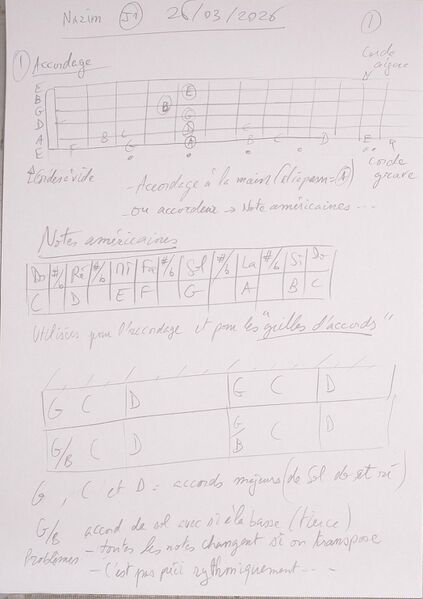 Nazim J1 26/03/2026 1
1 Accordage
Corde aigüe
E
B
G
D
A
E
E
B
G
D
A
F B C G C C D E
Corde grave
Cordes à vide
- Accordage à la main (diapason = A)
- ou accordeur → Note américaines ...
Notes américaines
Do #/b Ré #/b Mi Fa #/b Sol #/b La #/b Si Do
C D E F G A B C
Utilisées pour l'accordage et pour les "grilles d'accords"
G C D G C D
G/B C D G/B C D
G, C et D = accords majeurs (de Sol do et ré)
G/B accord de sol avec si à la basse (tierce)
Problèmes - toutes les notes changent si on transpose
- C'est pas précis rythmiquement ...